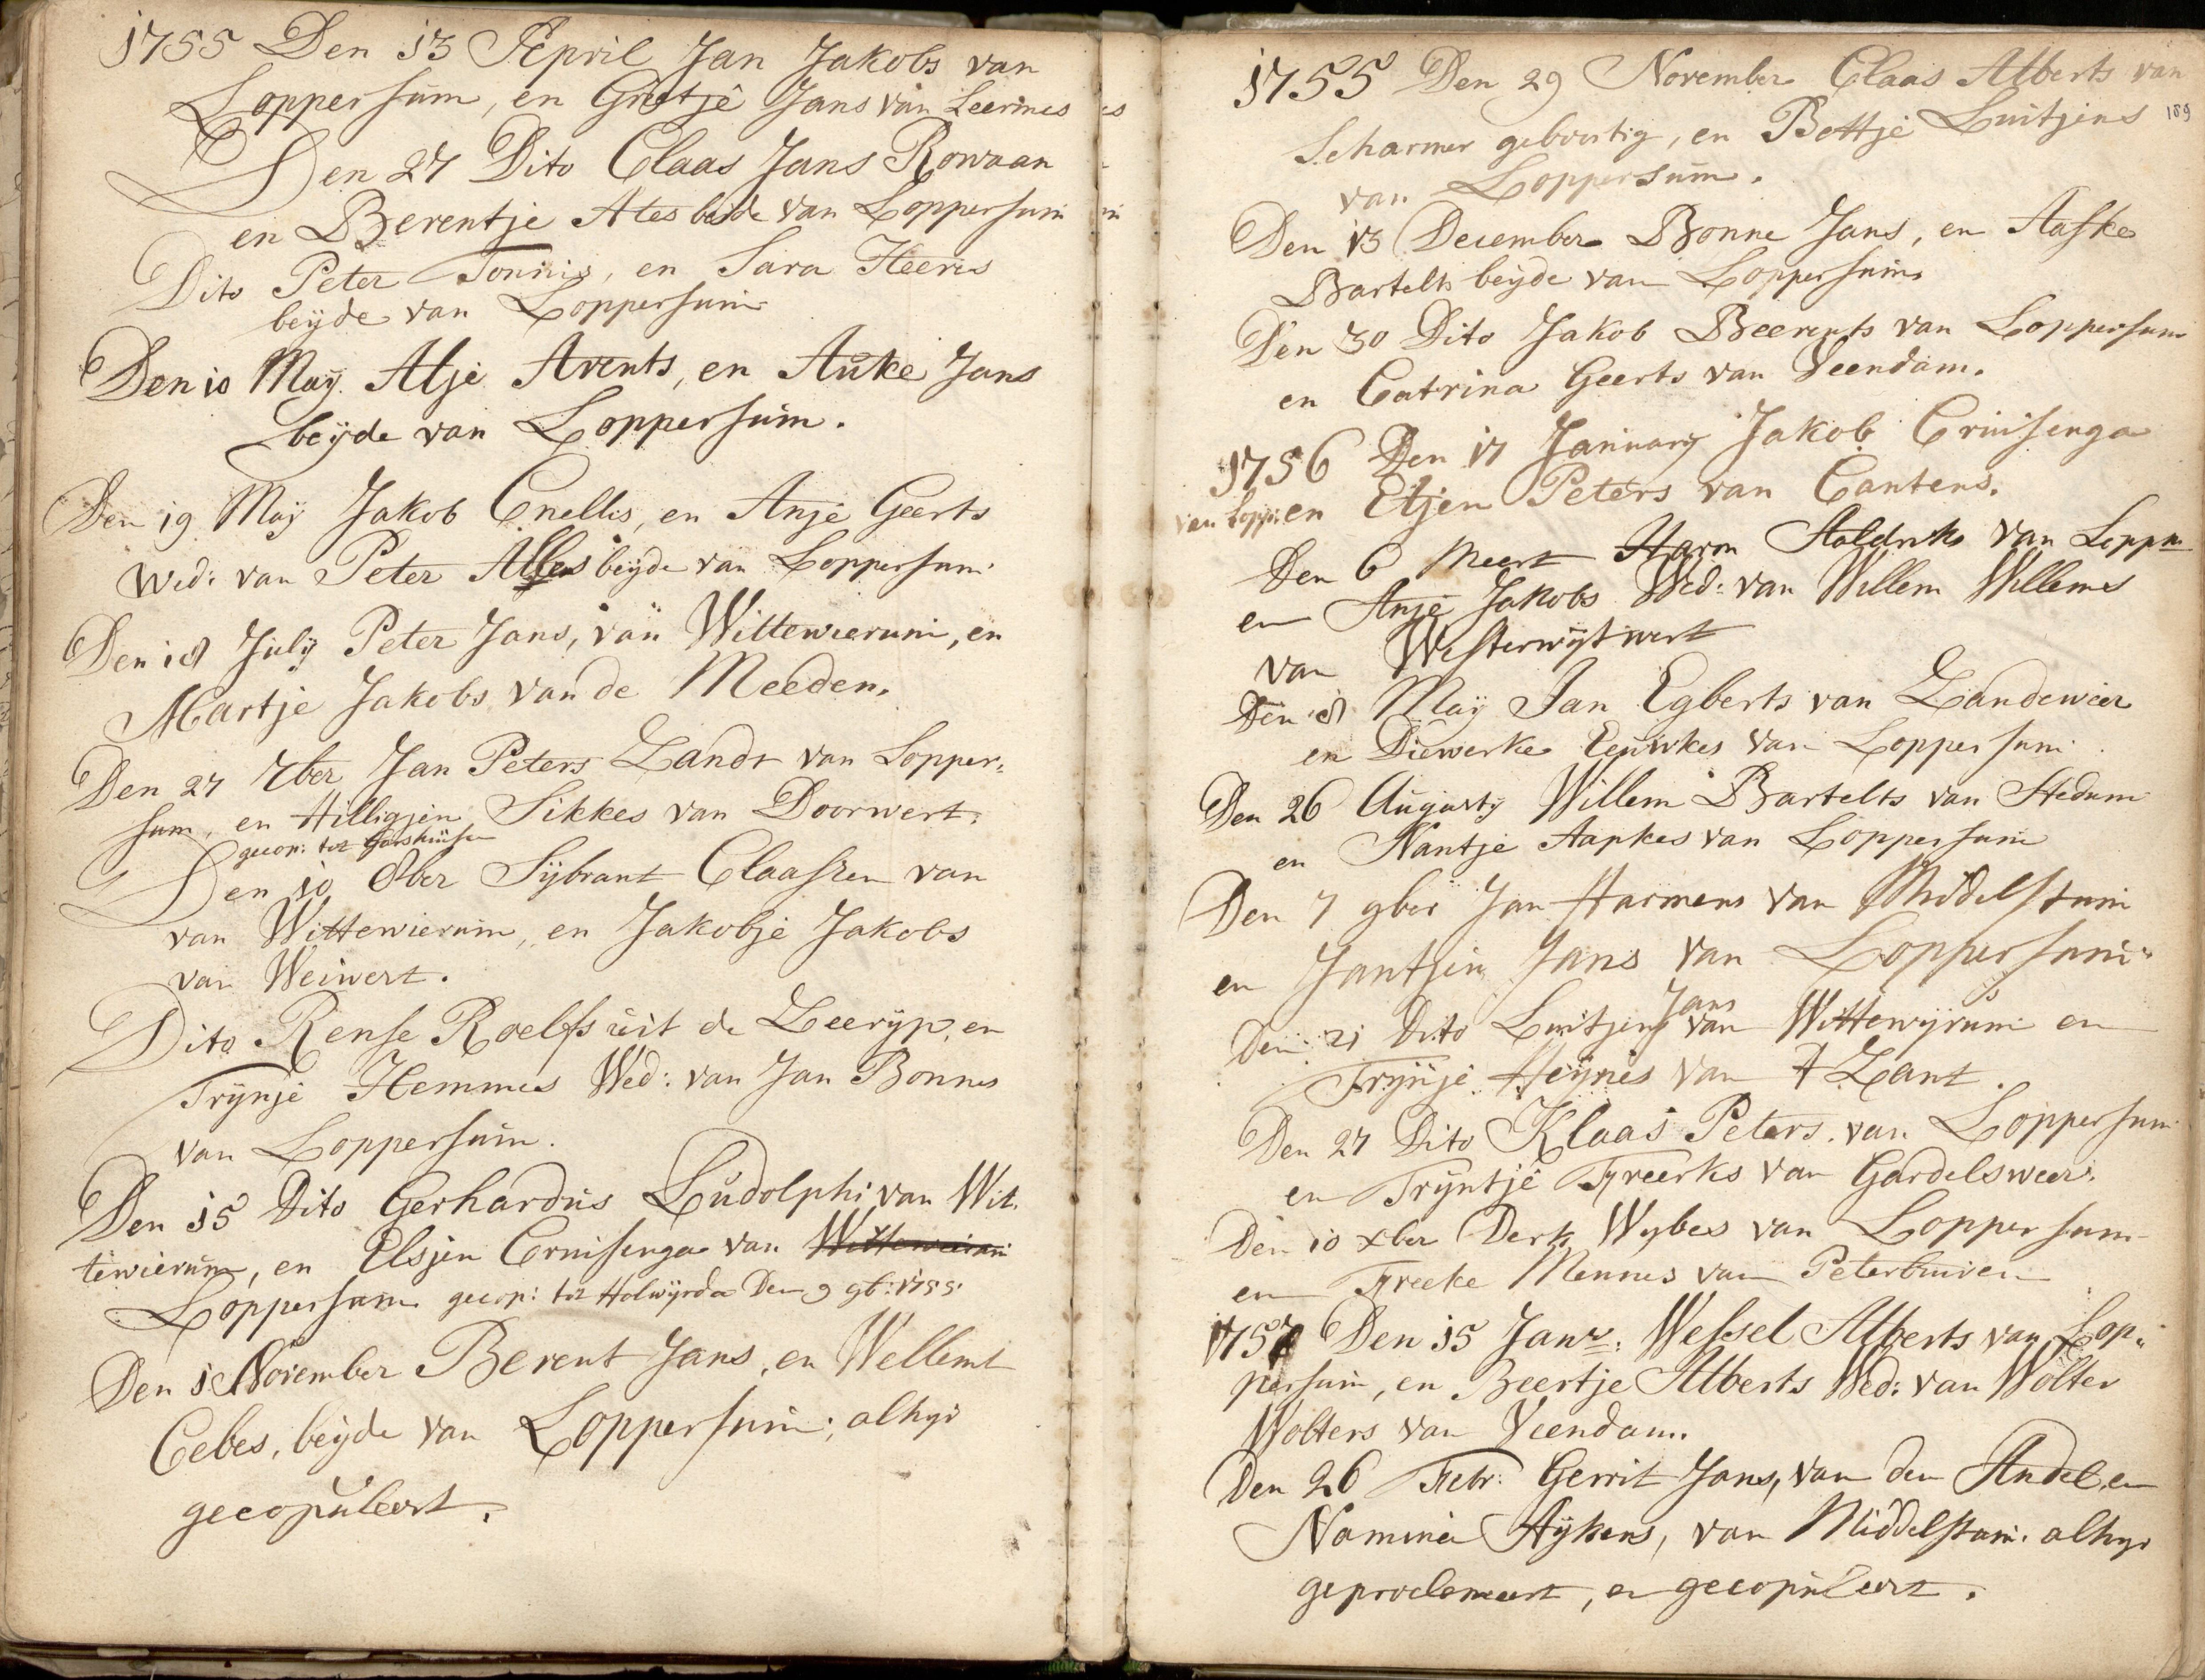 1755 Den 13 April Jan Jakobs van
Loppersum, en Grietje Jans van Leermes
Den 27 Dito Claas Jans Rowaan
en Berentje Ates beide van Loppersum
Dito Peter Tonnis, en Sara Heeres
beyde van Loppersum
Den 10 May Alje Arents, en Auke Jans
beyde van Loppersum.
Den 19 May Jakob Cnellis, en Anje Geerts
Wed: van Peter beyde van Loppersum
Den 18 July Peter Jans, van Wittewierum, en
Martje Jakobs van de Meeden.
Den 27 7ber Jan Peters Zandt van Lopper=
sum, en Hilligjen Sikkes van Doorwert.
gecop: tot Garshuisen
Den 10 8ber Sybrant Claassen van
van Wittewierum, en Jakobje Jakobs
van Weiwert.
Dito Rense Roelfs uit de Zeeryp, en
Trynje Hemmes Wed: van Jan Bonnes
van Loppersum.
Den 15 Dito Gerhardus Ludolphi van Wit.
tewierum, en Elsjen Cruisenga van Wittewierum
Loppersum gecop: tot Holwyrda Den 9 9b: 1755.
Den 1 November Berent Jans, en Wellemt
Cebes, beyde van Loppersum; alhyr
gecopuleert.
1755 Den 29 November Claas Alberts van
189
Scharmer geboortig, en Bettje Luitjens
van Loppersum.
Den 13 December Bonne Jans, en Aafke
Bartelts beyde van Loppersum
Den 30 Dito Jakob Beerents van Loppersum
en Catrina Geerts van Veendam.
1756 Den 17 January Jakob Cruisenga
van Lopp: en Etjen Peters van Cantens.
Den 6 Meert Harm Aaldriks van Loppm
en Anje Jakobs Wed: van Willem Willems
van Westerwytwert
Den 8 May Jan Egberts van Zandewier
en Diewerke Eeuwkes van Loppersum
Den 26 Augusty Willem Bartelts van Stedum
en Nantje Aapkes van Loppersum
Den 7 9ber Jan Harmens van Middelstum
en Jantjen Jans van Loppersum
Den 21 Dito Luitjen Jans van Wittewyrum en
Trynje Heynes van t Zant.
Den 27 Dito Klaas Peters van Loppersum
en Tryntje Freerks van Gardelsweer.
Den 10 xber Derk Wybes van Loppersum
en Freeke Mennes van Peterburen
1757 Den 15 Janr: Wessel Alberts van Lop=
persum, en Beertje Alberts Wed: van Wolter
Wolters van Veendam.
Den 26 Febr: Gerrit Jans, van den Andel, en
Namina Aykens, van Middelstum. alhyr
geproclameert, en gecopuleert.